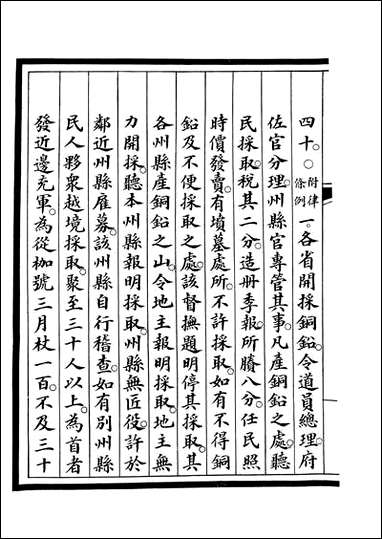 四十。○附律條例一。各省開採銅鉛。令道員總理。府
佐官分理。州縣官專管其事。凡產銅鉛之處。聽
民採取。稅其二分。造册季報。所賸八分。任民照
時價發賣。有墳墓處所。不許採取。如有不得銅
鉛及不便採取之處。該督撫題明停其採取。其
各州縣產銅鉛之山。令地主報明採取。地主無
力開採。聽本州縣報明採取。州縣無匠役。許於
鄰近州縣雇募。該州縣自行稽查。如有別州縣
民人夥衆越境採取。聚至三十人以上。為首者
發近邊充軍。為從枷號三月杖一百。不及三十